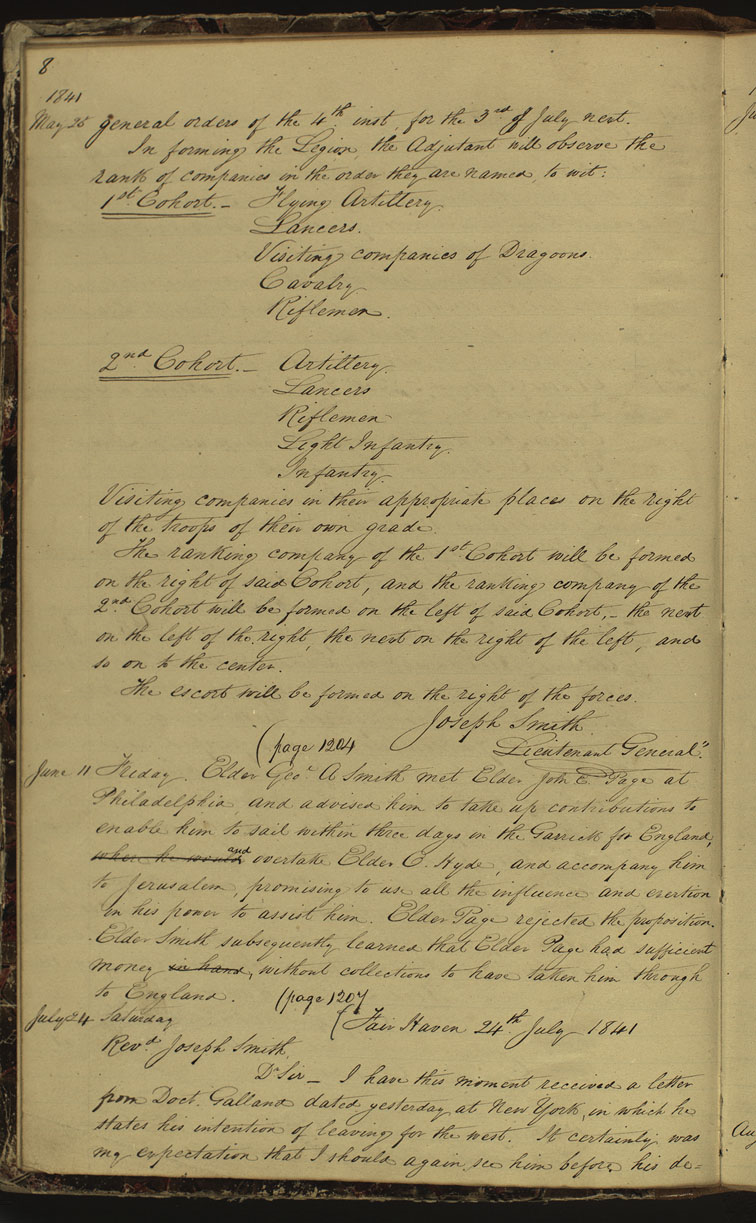 8
1841
May 25 general orders of the 4th inst, for the 3rd of July next.
In forming the Legion, the Adjutant will observe the
rank of companies in the order they are named, to wit:
1st Cohort.— Flying Artillery.
Lancers.
Visiting companies of Dragoons.
Cavalry
Riflemen.
2nd Cohort.— Artillery.
Lancers
Riflemen
Light Infantry.
Infantry.
Visiting companies in their appropriate places on the right
of the troops of their own grade.
The ranking company of the 1st Cohort will be formed
on the right of said Cohort, and the ranking company of the
2nd Cohort will be formed on the left of said Cohort,— the next
on the left of the right, the next on the right of the left, and
so on to the center.
The escort will be formed on the right of the forces.
Joseph Smith
Lieutenant General".
(page 1204
June 11 Friday. Elder Geo. A Smith met Elder John E. Page at
Philadelphia and advised him to take up contributions to
enable him to sail within three days in the Garrick for England,
where he would and overtake Elder O. Hyde, and accompany him
to Jerusalem, promising to use all the influence and exertion
in his power to assist him. Elder Page rejected the proposition.
Elder Smith subsequently learned that Elder Page had sufficient
money in hand, without collections to have taken him through
to England. (page 1207
July 24 Saturday (Fair Haven 24th July 1841
Revd Joseph Smith.
Dr Sir — I have this moment received a letter
from Doct. Galland dated yesterday, at New York, in which he
states his intention of leaving for the west. It certainly was
my expectation that I should again see him before his de=
Au